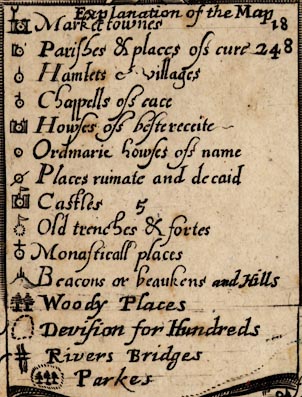 Explanation of the Map
Market townes 18
Parishes & places off cure 248
Hamlets & villages
Chappells off eace
Howses off beste receite
Ordinarie howses off name
Places ruinate and decaid
Castles 5
Old trenches & fortes
Monasticall places
Beacons or beaukens and Hills
Woody Places
Devision for Hundreds
Rivers Bridges
Parkes